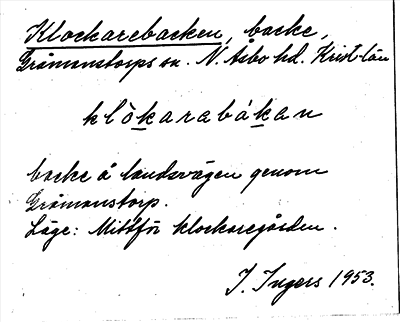 Klockarebacken, backe,
Gråmanstorps sn. N. Åsbo hd. Krist. län
klò̱karabákan
backe å landsvägen genom
Gråmanstorp.
Läge: Mittför klockaregården.
I. Ingers 1953.